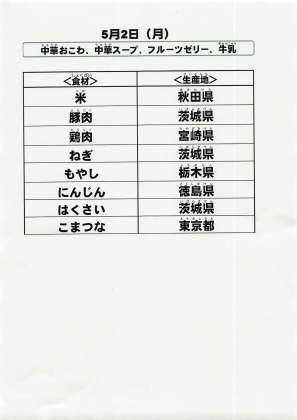 5月2日（月）
中華おこわ、中華スープ、フルーツゼリー、牛乳
＜食材＞ ＜生産地＞
米 秋田県
豚肉 茨城県
鶏肉 宮崎県
ねぎ 茨城県
もやし 栃木県
にんじん 徳島県
はくさい 茨城県
こまつな 東京都